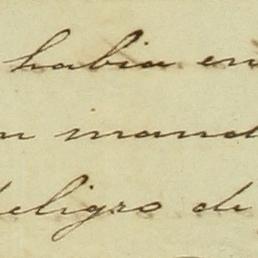 habia en
n mand
eligro de